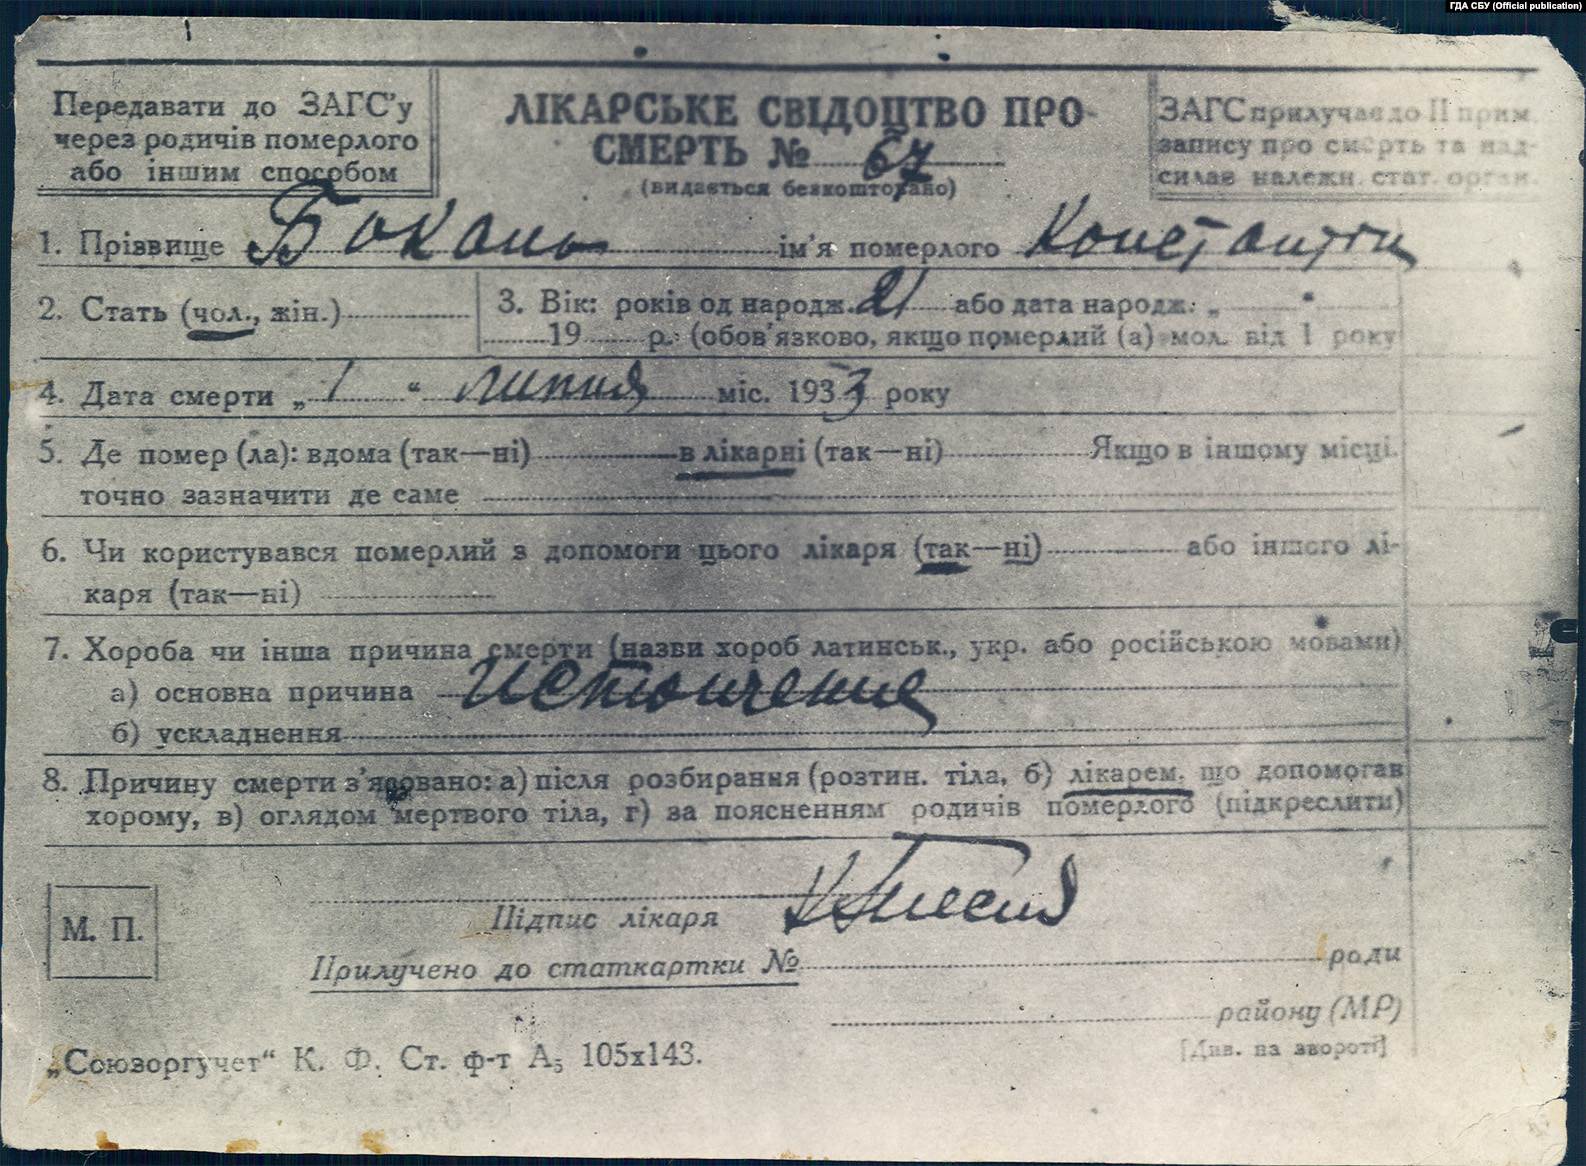 ГДА СБУ (Official publication)
Передавати до ЗАГС'у
через родичів померлого
або іншим способом
ЛІКАРСЬКЕ СВІДОЦТВО ПРО
СМЕРТЬ № 67
(видається безкоштовно)
ЗАГС прилучає до II прим.
запису про смерть та над-
силає належн. стат. орган.
1. Прізвище Бокань ім'я померлого Константин
2. Стать (чол., жін.)
3. Вік: років од народж. 21 або дата народж. „ “
19 р. (обов'язково, якщо померлий (а) мол. від 1 року
4. Дата смерти „1“ липня міс. 1933 року
5. Де помер (ла): вдома (так—ні) в лікарні (так—ні) Якщо в іншому місці,
точно зазначити де саме
6. Чи користувався померлий з допомоги цього лікаря (так—ні) або іншого лі-
каря (так—ні)
7. Хороба чи інша причина смерти (назви хороб латинськ., укр. або російською мовами)
а) основна причина Истощение
б) ускладнення
8. Причину смерти з'ясовано: а) після розбирання (розтин. тіла, б) лікарем, що допомогав
хорому, в) оглядом мертвого тіла, г) за поясненням родичів померлого (підкреслити)
М. П.
Підпис лікаря
Прилучено до статкартки № ради
району (МР)
[Див. на звороті]
„Союзоргучет“ К. Ф. Ст. ф-т А5 105х143.